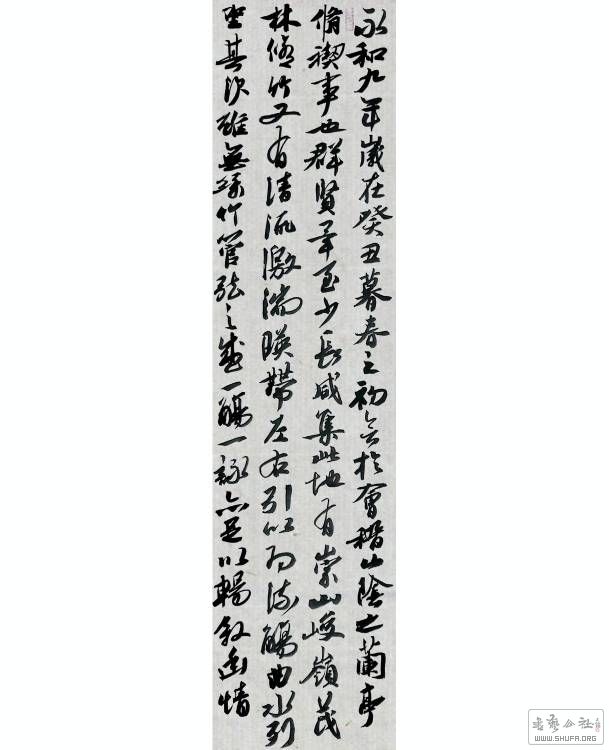 永和九年歲在癸丑暮春之初會於會稽山陰之蘭亭
脩禊事也群賢畢至少長咸集此地有崇山峻嶺茂
林脩竹又有清流激湍暎帶左右引以為流觴曲水列
坐其次雖無絲竹管弦之盛一觴一詠亦足以暢叙幽情
书艺公社
WWW.SHUFA.ORG